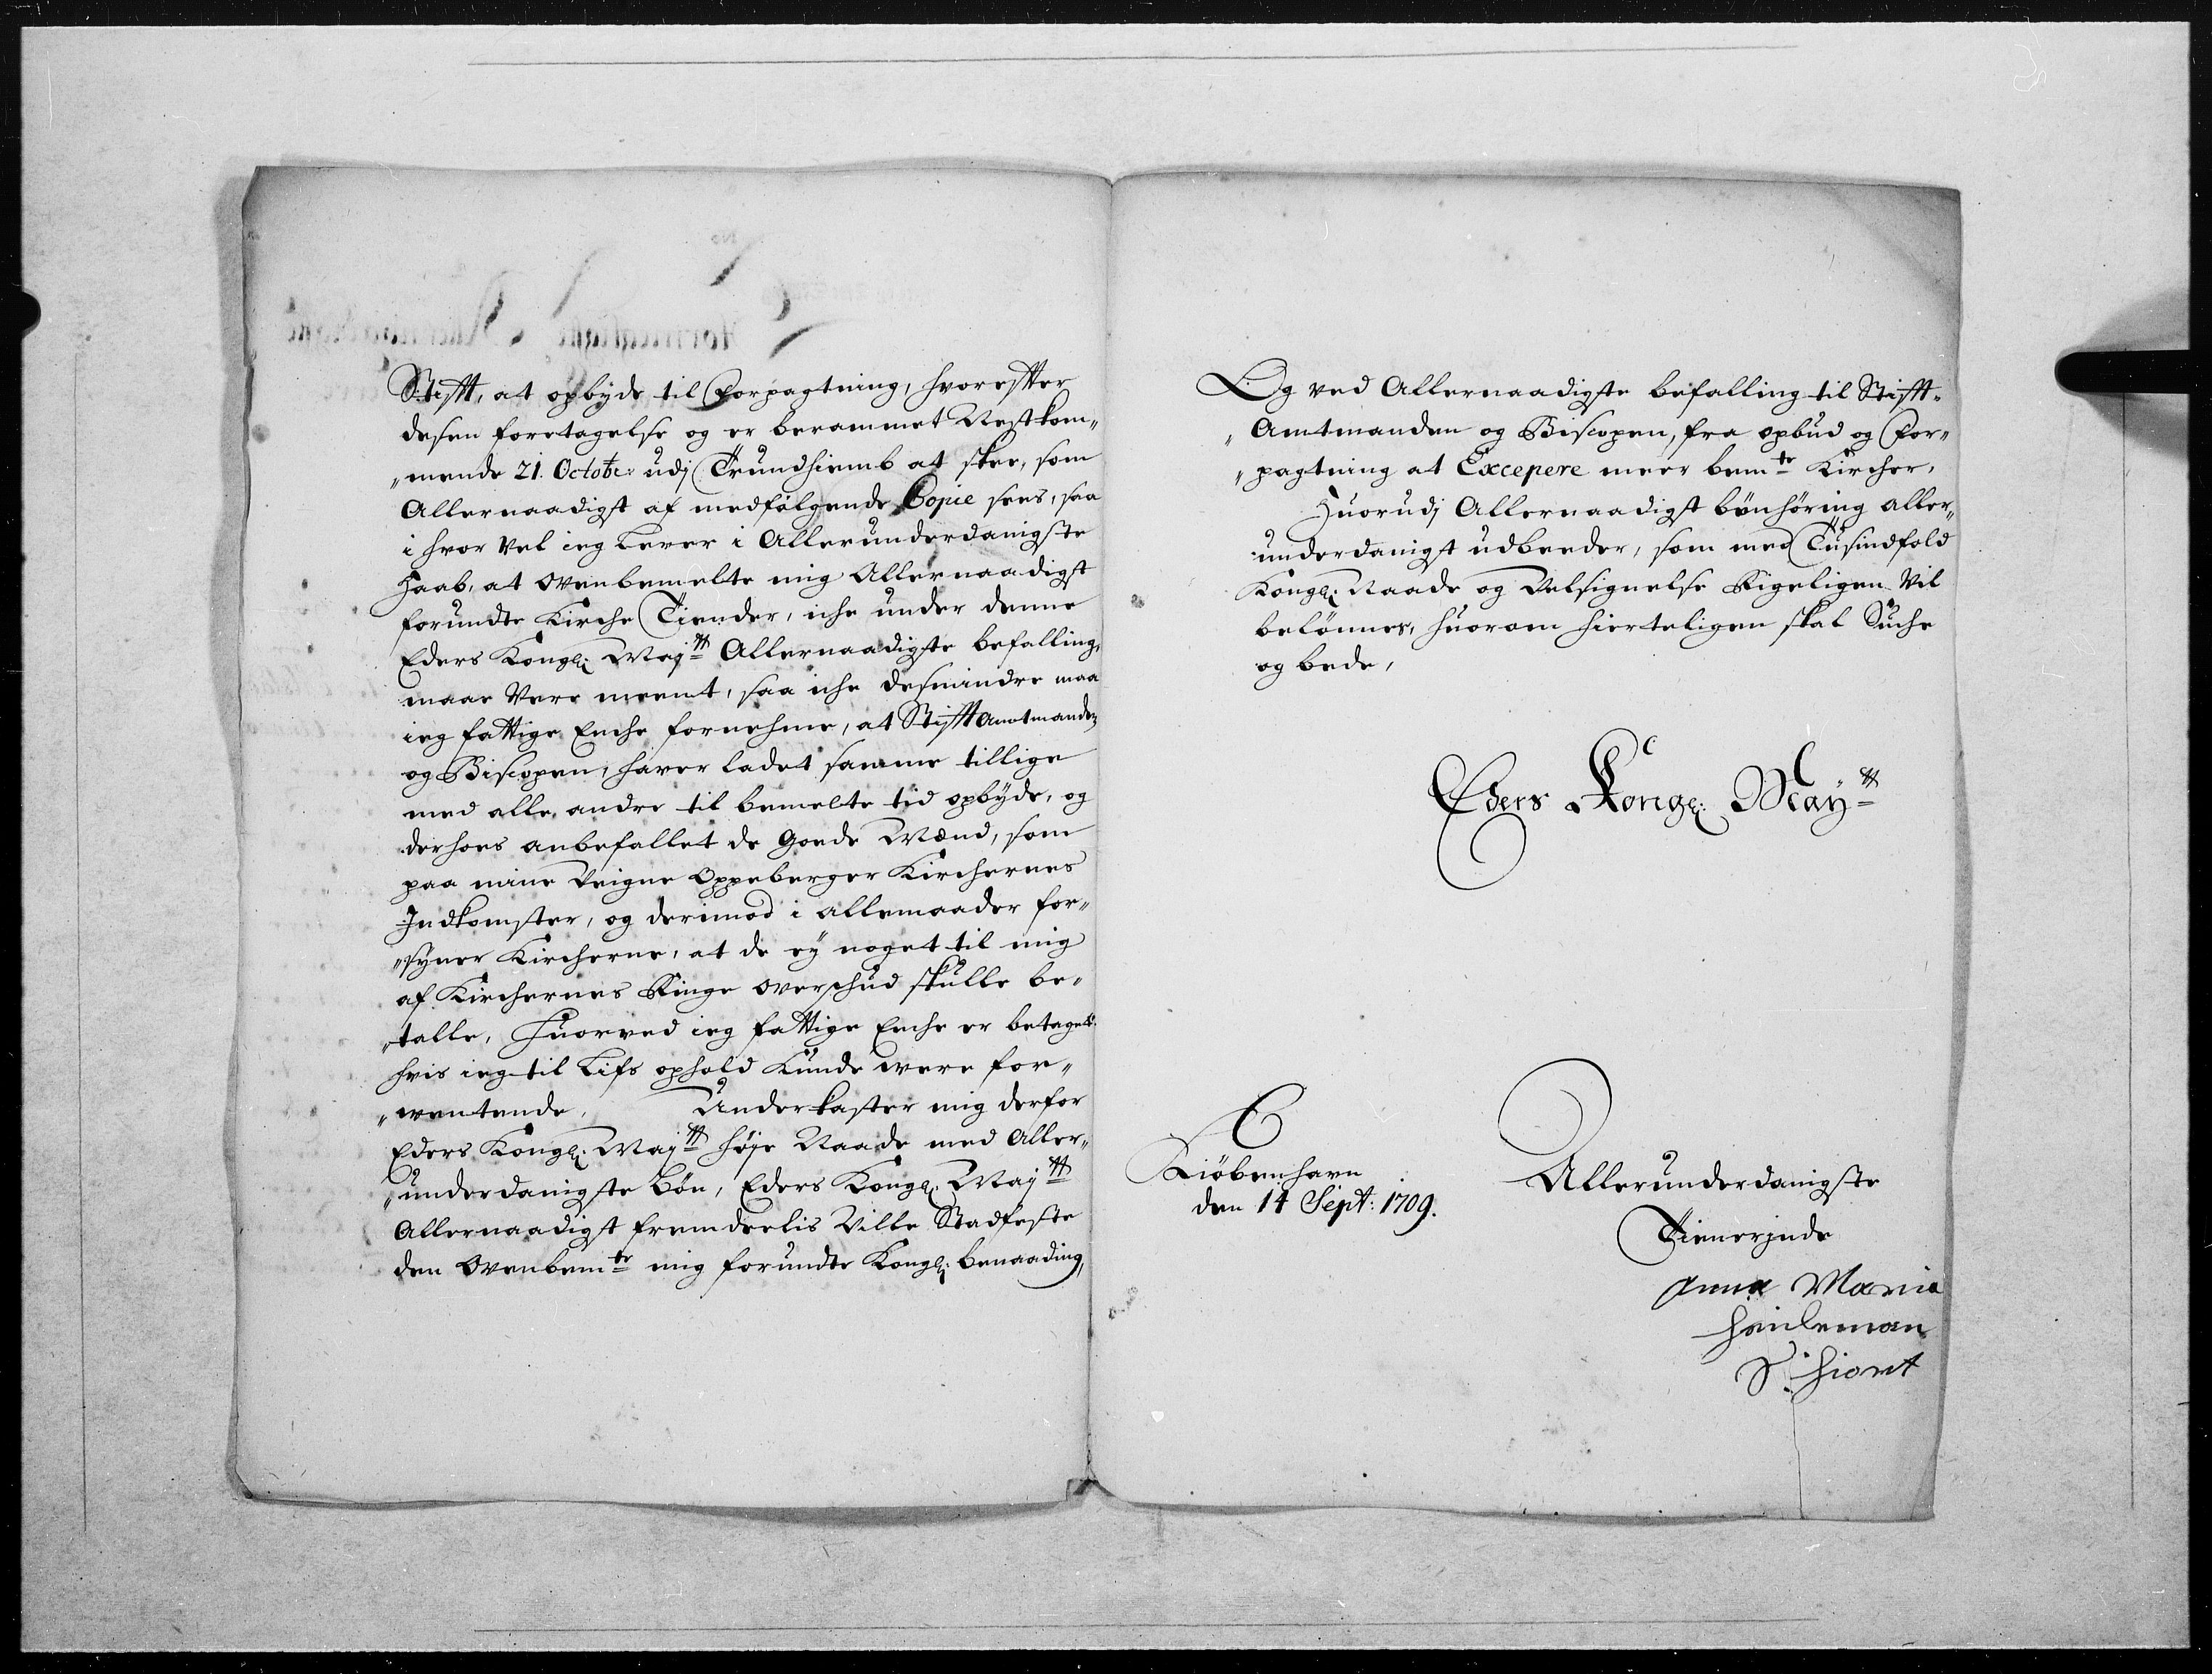 Stifft, at opbyde til Forpagtning, hvorefter
desen foretagelse og er berammet Nestkom„
„mende 21. Octobr: udj Trundhiemb at skee, som
Allernaadigst af medfølgende Copie sees, saa
i hvor vel ieg lever i Allerunderdanigste
Haab, at ovenbemelte mig Allernaadigst
forundte Kirche Tiender, iche under denne
Eders Kongl: Maj:tt Allernaadigste befalling,
maae være meent, saa iche desmindre maa
ieg fattige Enche fornehme, at Stifft Amtmanden
og Biscopen, haver ladet samme tillige
med alle andre til bemelte tid opbyde, og
derhoes anbefallet de Goede Mænd, som
paa mine Veigne Oppeberger Kirchernes
Indkomster, og derimod i allemaader for„
„syner Kircherne, at de ey noget til mig
af Kirchernes Ringe overschud skulle be„
„talle, Huorved ieg fattige Enche er betaget
hvis ieg til Lifs ophold Kunde være for„
„ventende, Underkaster mig derfor
Eders Kongl: Maj:tt høje Naade med Aller„
„underdanigste bøn, Eders Kongl: Maj:tt
Allernaadigst fremdeelis Ville Stadfeste
den Ovenbem:te mig forundte Kongl: benaading,
Og ved Allernaadigste befalling til Stifft„
„Amtmanden og Biscopen, fra opbud og For„
„pagtning at Excepere meer bem:te Kircher,
Huorudj Allernaadigst bønhøring aller„
underdanigst udbeeder, som med Tusindfold
Kongl: Naade og Velsignelse Rigeligen Vil
belønnes, huorom hierteligen skal Suche
og bede,
Eders Kongl: May:tt
Kiøbenhavn
den 14 Sept: 1709.
Allerunderdanigste
Tienerjnde
Anna Maria
S: Hiort